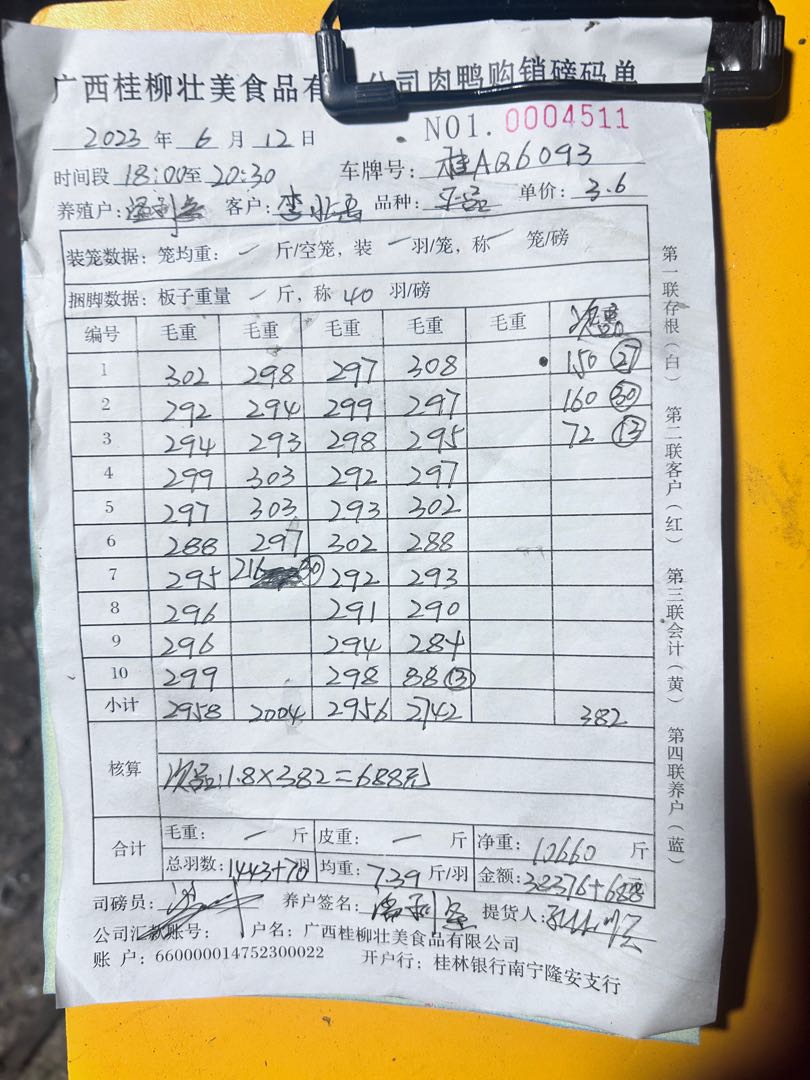 广西桂柳壮美食品有 公司肉鸭购销磅码单
2023 年 6 月 12 日 NO1. 0004511
时间段 18:00至20:30 车牌号: 桂AQ6093
养殖户: 客户: 品种: 单价: 3.6
装笼数据: 笼均重: 一 斤/空笼, 装 一 羽/笼, 称 一 笼/磅
捆脚数据: 板子重量 一 斤, 称 40 羽/磅
编号 毛重 毛重 毛重 毛重 毛重 次品
1 302 298 297 308 150 27
2 292 294 299 297 160 30
3 294 293 298 295 72 13
4 299 303 292 297
5 297 303 293 302
6 288 297 302 288
7 295 216 30 292 293
8 296 291 290
9 296 294 284
10 299 298 88 13
小计 2958 2004 2956 2742 382
核算 次品:1.8×382=688元
合计 毛重: 一 斤 皮重: 一 斤 净重: 10660 斤
总羽数: 1443+70羽 均重: 7.39 斤/羽 金额: 38376+688
司磅员: 养户签名: 提货人:
公司汇款账号: 户名: 广西桂柳壮美食品有限公司
账 户: 660000014752300022 开户行: 桂林银行南宁隆安支行
第一联存根(白) 第二联客户(红) 第三联会计(黄) 第四联养户(蓝)